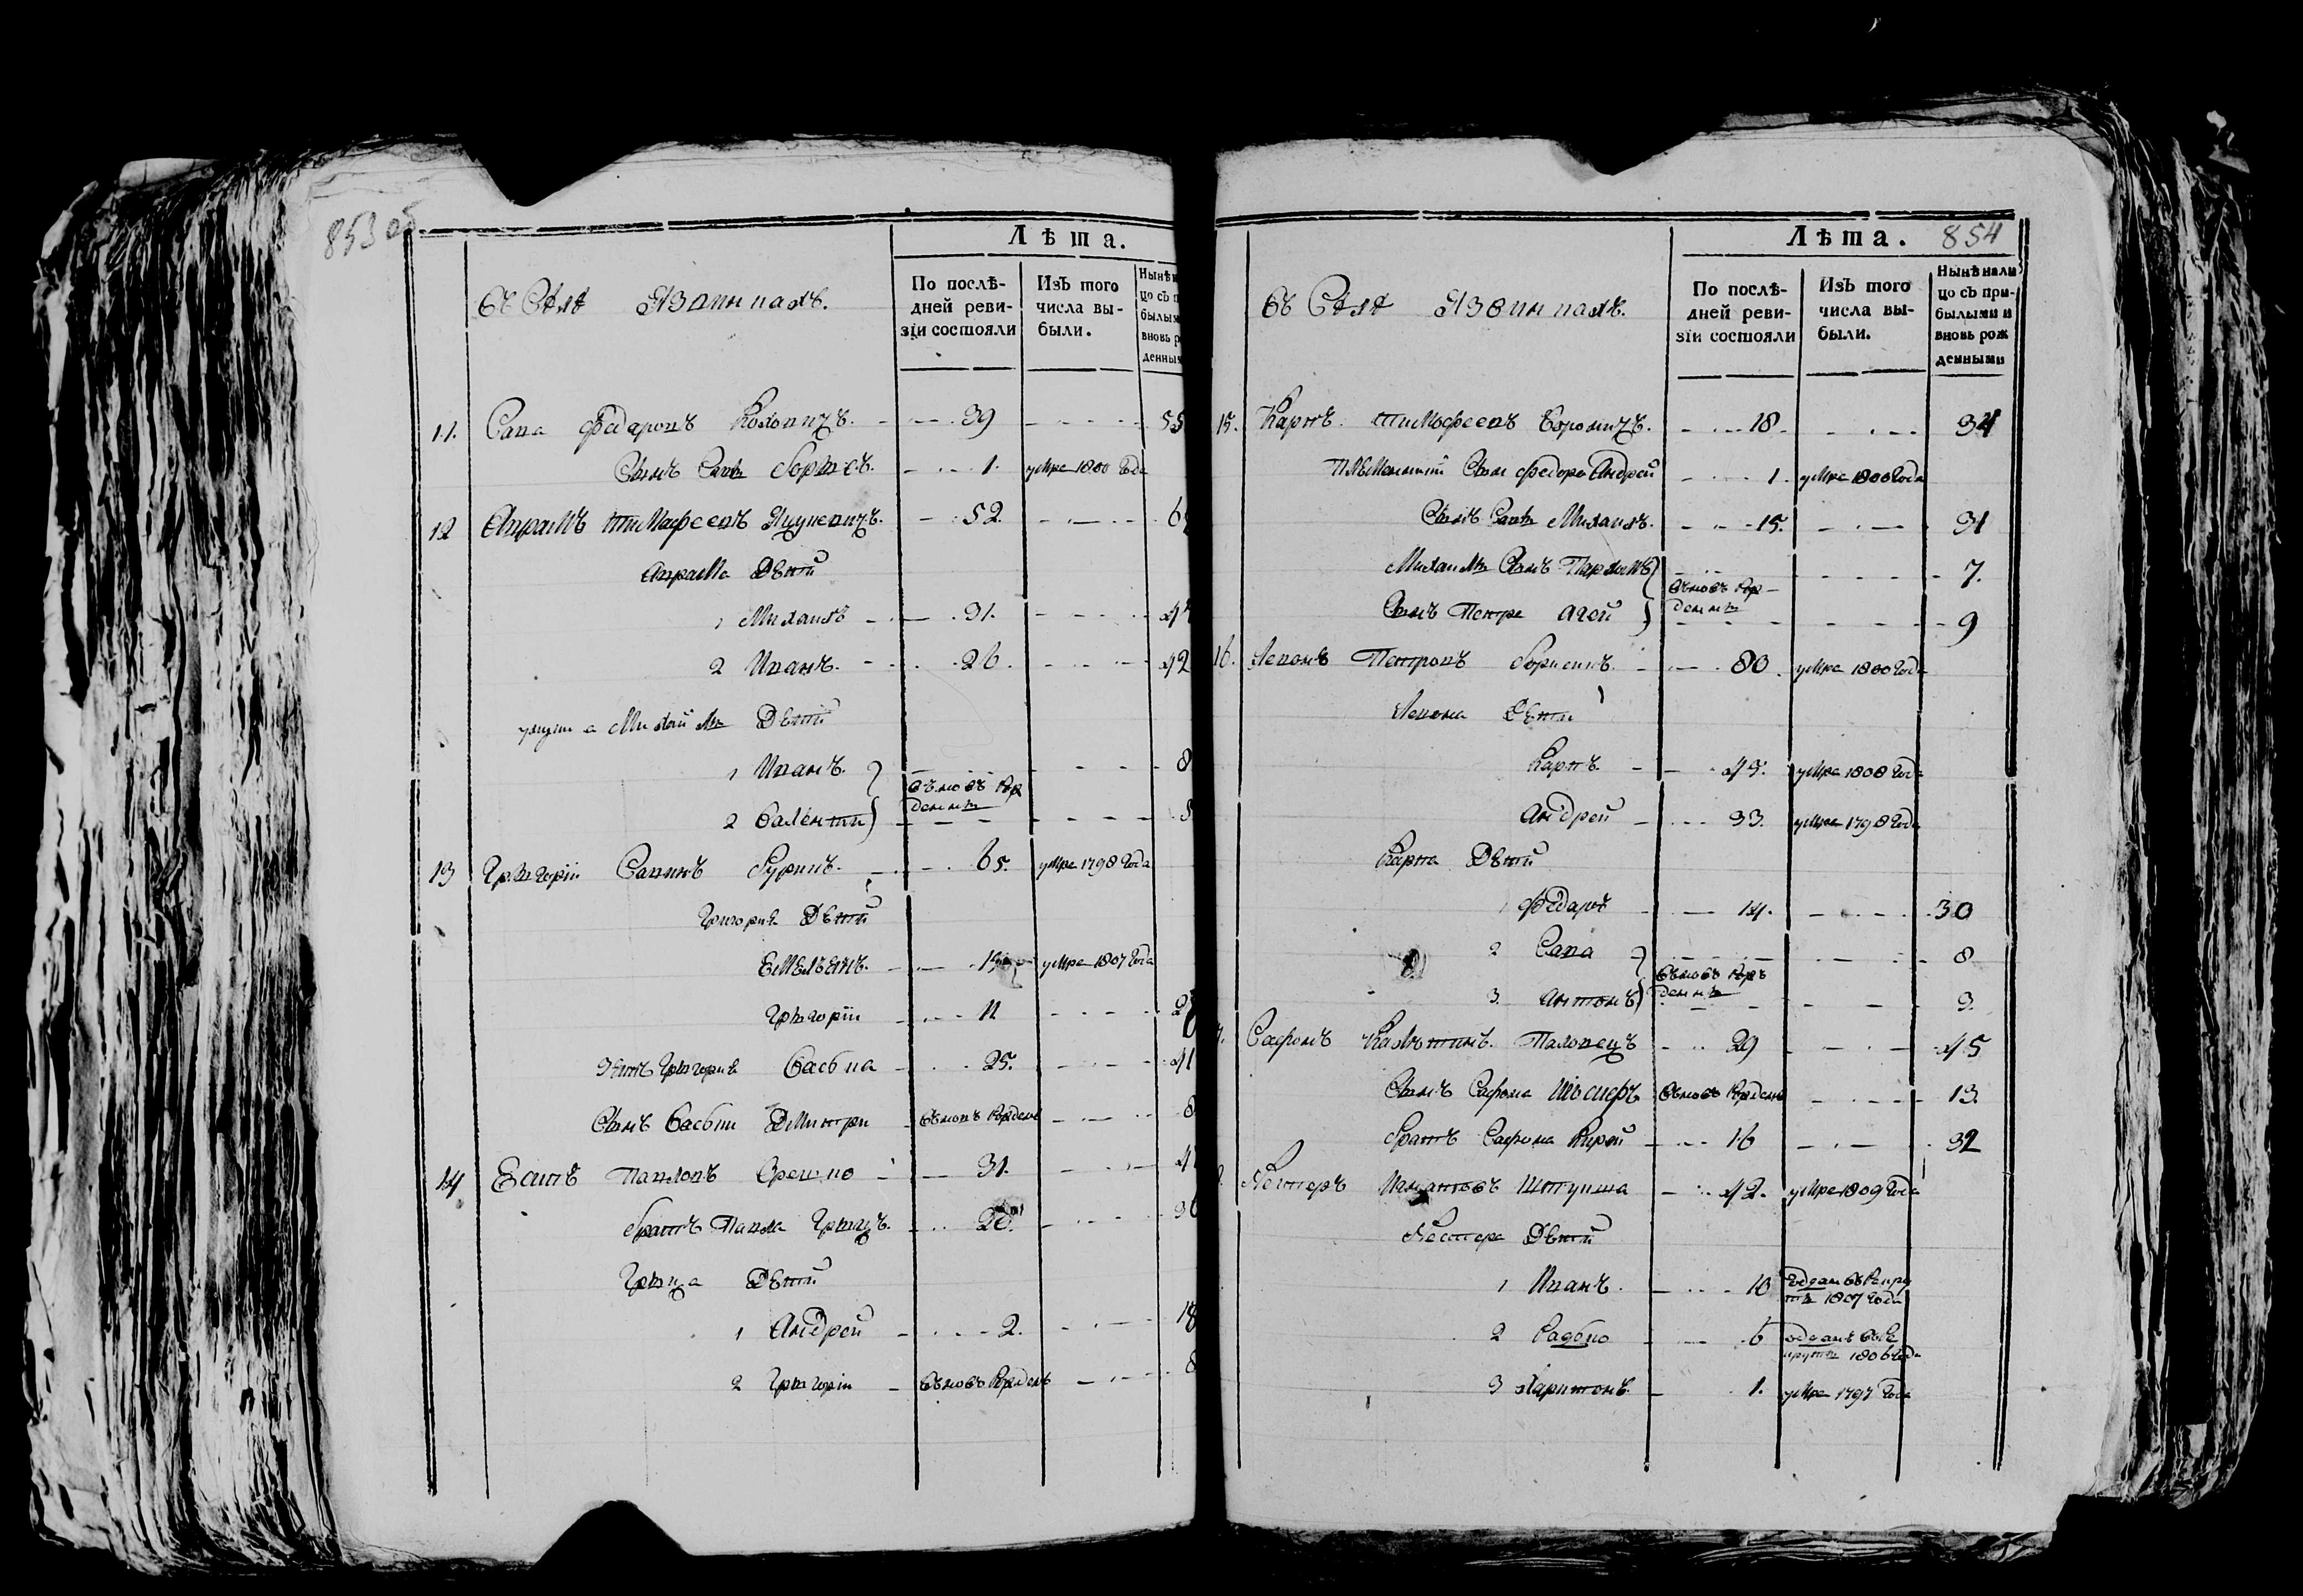 853 об
Лѣта.
Въ Селѣ Язвинкахъ.
По послѣ-
дней реви-
зіи состояли
Изъ того
числа вы-
были.
Нынѣ
цо съ п
былым
вновь р
денным
11. Сава Федаровъ — 39 — 55
Сынъ Савы Борисъ. — 1. умре 1800 Года
12 Аврамъ Тимафеевъ — 52.
Аврама Дѣти
1 Михаилъ — 31.
2 Иванъ. — 26. — 42
Михайлы Дѣти
1 Иванъ. — 8
вѣновь Рож
денны
2 Валенти
13 Григорій Савинъ — 65. умре 1798 Года
Григория Дѣти
Емельянъ. умре 1807 Года
Григорій — 11
Зять Григория Васька — 25. — 41
Сынъ Васьки Дмитри вѣновь Рожденъ — 8
14 Есипъ Павловъ — 31.
Братъ Павла Грицъ. — 20.
Грица Дѣти
1 Андрей — 2. — 18
2 Григорій — вѣновь Рожденъ — 8
854
Лѣта.
Въ Селѣ Язвинкахъ.
По послѣ-
дней реви-
зіи состояли
Изъ того
числа вы-
были.
Нынѣ нали
цо съ при-
былыми и
вновь рож
денными
15. Карпъ Тимофеевъ — 18. — 34
Племянникъ Сынъ Федора Андрей — 1. умре 1800 Года
Сынъ Савы Михаилъ. — 15. — 31
Михаилы Сынъ Пархомъ — 7.
вѣновь Рож-
денны
Сынъ Петра Агей — 9
16. Левонъ Петровъ — 80. умре 1800 Года
Левона Дѣти
Карпъ. — 43. умре 1808 Года
Андрей — 33. умре 1798 Года
Карпа Дѣти
1 Федаръ — 14. — 30
2 Сава — 8
вѣновь Рожъ
денны
3. Антонъ — 3.
Сафонъ — 29 — 45
Сынъ Сафона Іосифъ вѣновь Рожденъ — 13.
Братъ Сафона Кирей — 16 — 32
Нестеръ — 42. умре 1809 Года
Нестера Дѣти
1 Иванъ. — 10 отданъ въ Рекру
ты 1807 Года
2 Радько — 6 отданъ въ Ре
круты 1806 Года
3 Харитонъ. — 1. умре 1797 Года